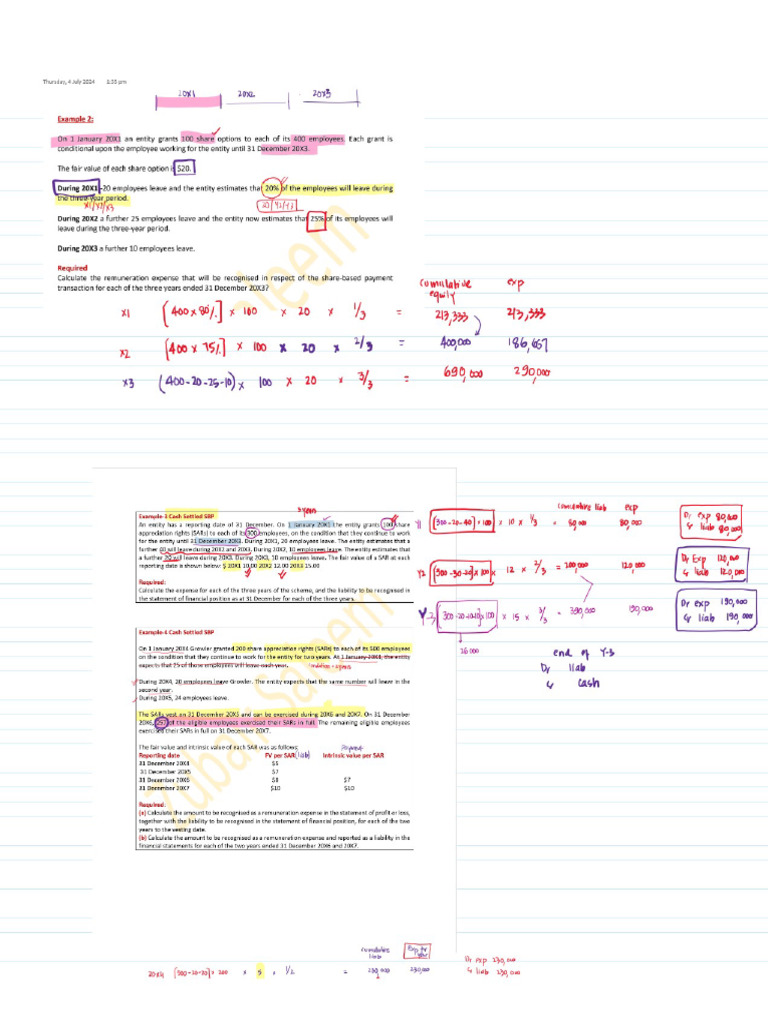 Thursday, 4 July 2024 1:53 pm
20X1 20X2 20X3
Example 2:
On 1 January 20X1 an entity grants 100 share options to each of its 400 employees. Each grant is
conditional upon the employee working for the entity until 31 December 20X3.
The fair value of each share option is $20.
During 20X1 20 employees leave and the entity estimates that 20% of the employees will leave during
the three-year period.
X1/X2/X3
During 20X2 a further 25 employees leave and the entity now estimates that 25% of its employees will
leave during the three-year period.
During 20X3 a further 10 employees leave.
Required
Calculate the remuneration expense that will be recognised in respect of the share-based payment
transaction for each of the three years ended 31 December 20X3?
cumulative equity exp
X1 [400 x 80%] x 100 x 20 x 1/3 = 213,333 213,333
X2 [400 x 75%] x 100 x 20 x 2/3 = 400,000 186,667
X3 (400-20-25-10) x 100 x 20 x 3/3 = 690,000 290,000
3 years
Example-3 Cash Settled SBP
An entity has a reporting date of 31 December. On 1 January 20X1 the entity grants 100 share
appreciation rights (SARs) to each of its 300 employees, on the condition that they continue to work
for the entity until 31 December 20X3. During 20X1, 20 employees leave. The entity estimates that a
further 40 will leave during 20X2 and 20X3. During 20X2, 10 employees leave. The entity estimates that
a further 20 will leave during 20X3. During 20X3, 10 employees leave. The fair value of a SAR at each
reporting date is shown below: $ 20X1 10.00 20X2 12.00 20X3 15.00
Required:
Calculate the expense for each of the three years of the scheme, and the liability to be recognised in
the statement of financial position as at 31 December for each of the three years.
cumulative liab exp
Y1 [300-20-40] x 100 x 10 x 1/3 = 80,000 80,000
Dr exp 80,000
Cr liab 80,000
Y2 [300-30-20] x 100 x 12 x 2/3 = 200,000 120,000
Dr Exp 120,000
Cr liab 120,000
Y-3 [300-20-10-10] x 100 x 15 x 3/3 = 390,000 190,000
Dr exp 190,000
Cr liab 190,000
26000
end of Y-3
Dr liab
Cr cash
Example-4 Cash Settled SBP
On 1 January 20X4 Growler granted 200 share appreciation rights (SARs) to each of its 500 employees
on the condition that they continue to work for the entity for two years. At 1 January 20X4, the entity
expects that 25 of those employees will leave each year.
During 20X4, 20 employees leave Growler. The entity expects that the same number will leave in the
second year.
During 20X5, 24 employees leave.
The SARs vest on 31 December 20X5 and can be exercised during 20X6 and 20X7. On 31 December
20X6, 257 of the eligible employees exercised their SARs in full. The remaining eligible employees
exercised their SARs in full on 31 December 20X7.
The fair value and intrinsic value of each SAR was as follows:
Payment
Reporting date FV per SAR (liab) Intrinsic value per SAR
31 December 20X4 $5
31 December 20X5 $7
31 December 20X6 $8 $7
31 December 20X7 $10 $10
Required:
(a) Calculate the amount to be recognised as a remuneration expense in the statement of profit or loss,
together with the liability to be recognised in the statement of financial position, for each of the two
years to the vesting date.
(b) Calculate the amount to be recognised as a remuneration expense and reported as a liability in the
financial statements for each of the two years ended 31 December 20X6 and 20X7.
cumulative liab
20X4 [500-20-20] x 200 x 5 x 1/2 = 230,000 230,000
Dr exp 230,000
Cr liab 230,000
Zubair Saleem